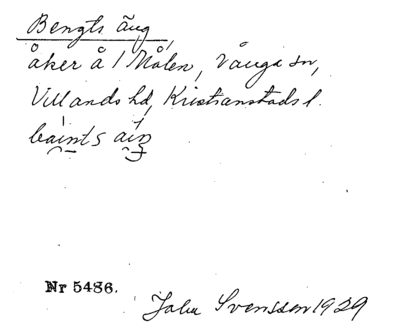 Bengts äng,
åker å 1 Målen, Vånga sn,
Villands hd, Kristianstads l.
baints äiŋ
Nr 5486.
John Svensson 1929